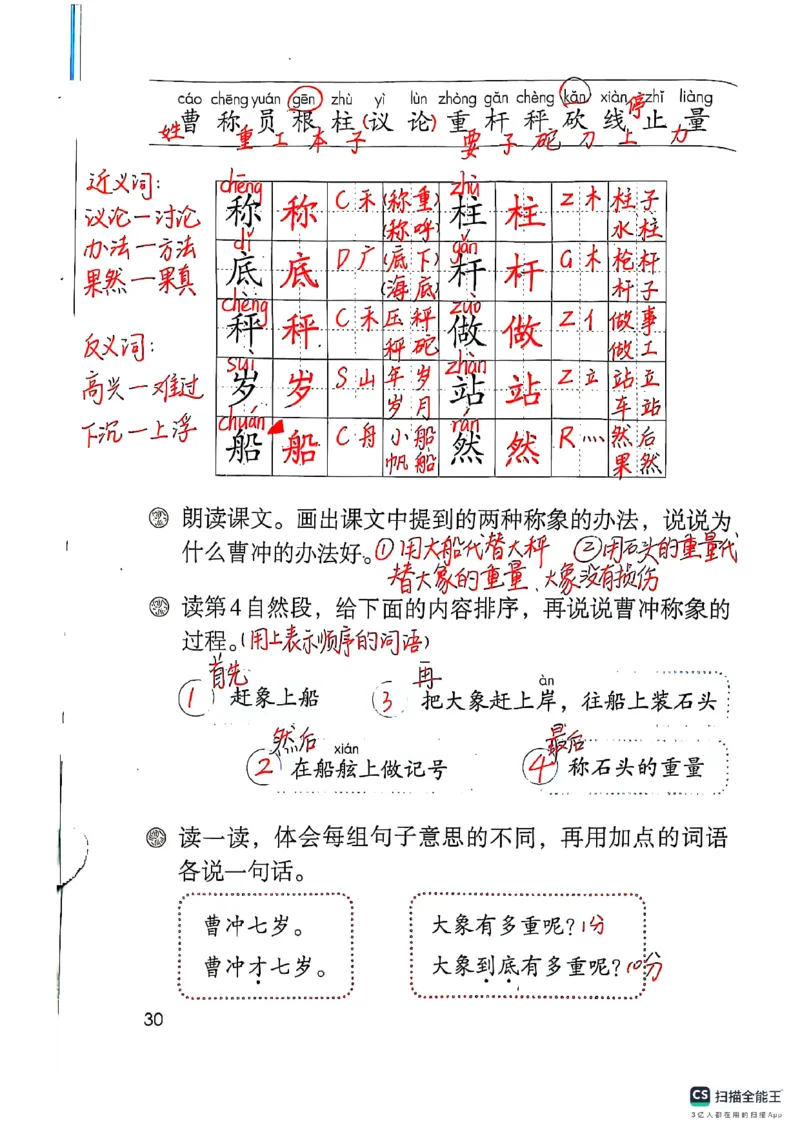 cáo chēng yuán gēn zhù yì lùn zhòng gǎn chèng kǎn xiàn zhǐ liàng
姓曹 称 员 根 柱(议 论)重 杆 秤 砍 线 停止 量
重 工 本 子 要 子 砣 刀 上 力
近义词:
议论—讨论
办法—方法
果然—果真
反义词:
高兴—难过
下沉—上浮
chēng zhù
称 称 C 禾 (称重) 柱 柱 Z 木 柱子
(称呼) 水柱
dǐ gǎn
底 底 D 广 (底下) 杆 杆 G 木 枪杆
(海底) 杆子
chèng zuò
秤 秤 C 禾 压秤 做 做 Z 亻 做事
秤砣 做工
suì zhàn
岁 岁 S 山 年岁 站 站 Z 立 站立
岁月 车站
chuán rán
船 船 C 舟 小船 然 然 R 灬 然后
帆船 果然
朗读课文。画出课文中提到的两种称象的办法，说说为
什么曹冲的办法好。①用大船代替大秤 ②用石头的重量代
替大象的重量、大象没有损伤
读第4自然段，给下面的内容排序，再说说曹冲称象的
过程。(用上表示顺序的词语)
首先 再 àn
1 赶象上船 3 把大象赶上岸，往船上装石头
然后 xián 最后
2 在船舷上做记号 4 称石头的重量
读一读，体会每组句子意思的不同，再用加点的词语
各说一句话。
曹冲七岁。 大象有多重呢？1分
曹冲才七岁。 大象到底有多重呢？10分
30
CS 扫描全能王
3亿人都在用的扫描App